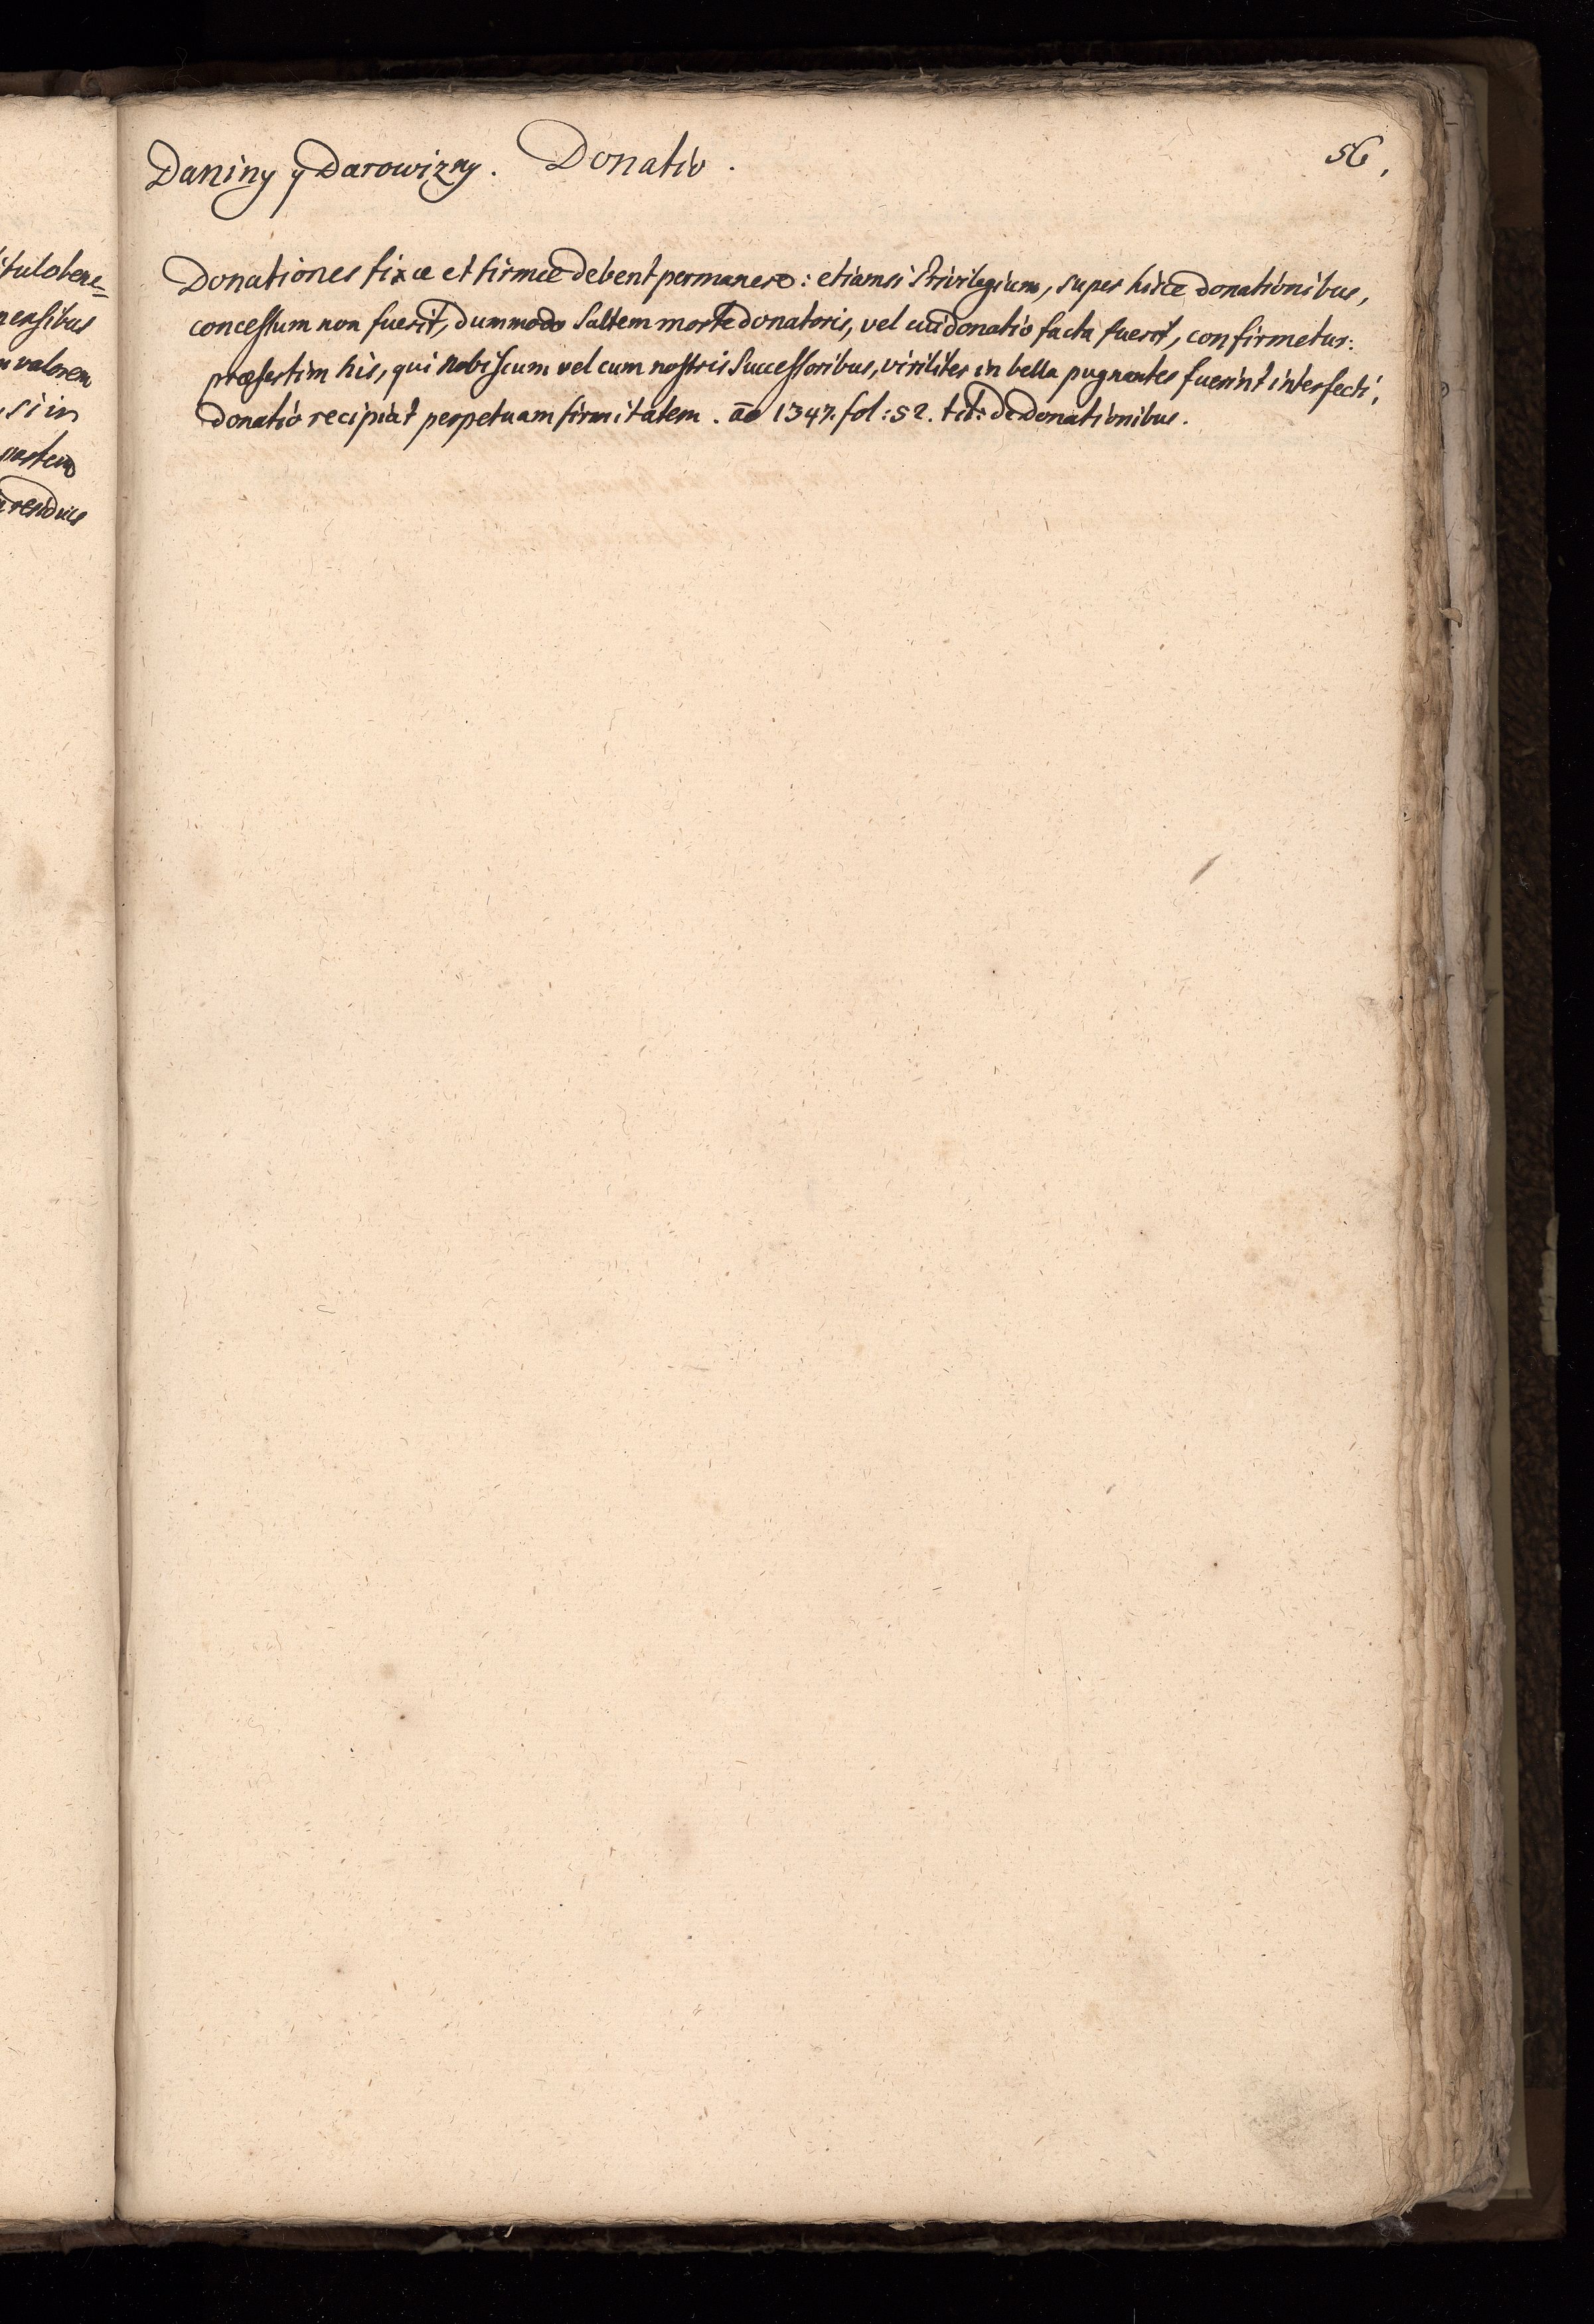 Daniny y Darowizny. Donatio.
56,
Donationes fixæ et firmæ debent permanere: etiamsi Privilegium, super hisce donationibus,
concessum non fuerit, dummodo Saltem morte donatoris, vel cui donatio facta fuerit, confirmetur:
præsertim his, qui nobiscum vel cum nostris Successoribus, viriliter in bella pugnantes fuerint interfecti,
donatio recipiat perpetuam firmitatem. aō 1347. fol: 52. tit: de Donationibus.
valorem
si in
partem